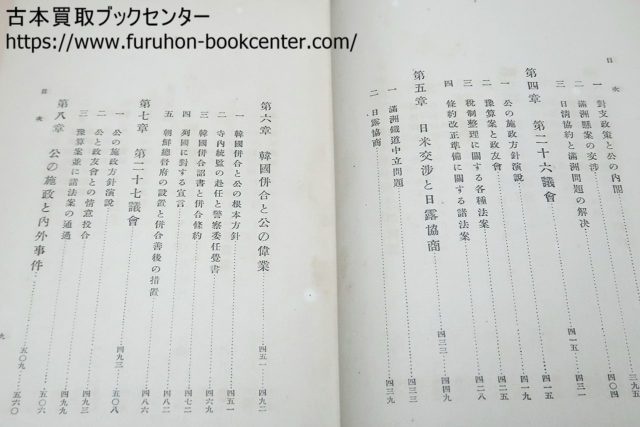 古本買取ブックセンター
https://www.furuhon-bookcenter.com/
目次
一 對支政策と公の內閣 三九五
二 滿洲懸案の交涉 四〇四
三 日淸協約と滿洲問題の解決
第四章 第二十六議會 四一五 四三一
一 公の施政方針演說 四一五
二 豫算案と政友會 四一九
三 稅制整理に關する各種法案 四二八
四 條約改正準備に關する諸法案
第五章 日米交涉と日露協商 四三三 四四九
一 滿洲鐵道中立問題 四三三
二 日露協商 四三九
目次
第六章 韓國併合と公の偉業 四五一 四九二
一 韓國併合と公の根本方針 四五一
二 寺內統監の赴任と警察委任覺書
三 韓國併合詔書と併合條約 四六九
四 列國に對する宣言 四七二
五 朝鮮總督府の設置と併合善後の措置 四八六
第七章 第二十七議會 四九三 五〇八
一 公の施政方針演說 四九三
二 公と政友會との情意投合 四九九
三 豫算案並に諸法案の通過 五〇六
第八章 公の施政と內外事件 五〇九 五六〇
九